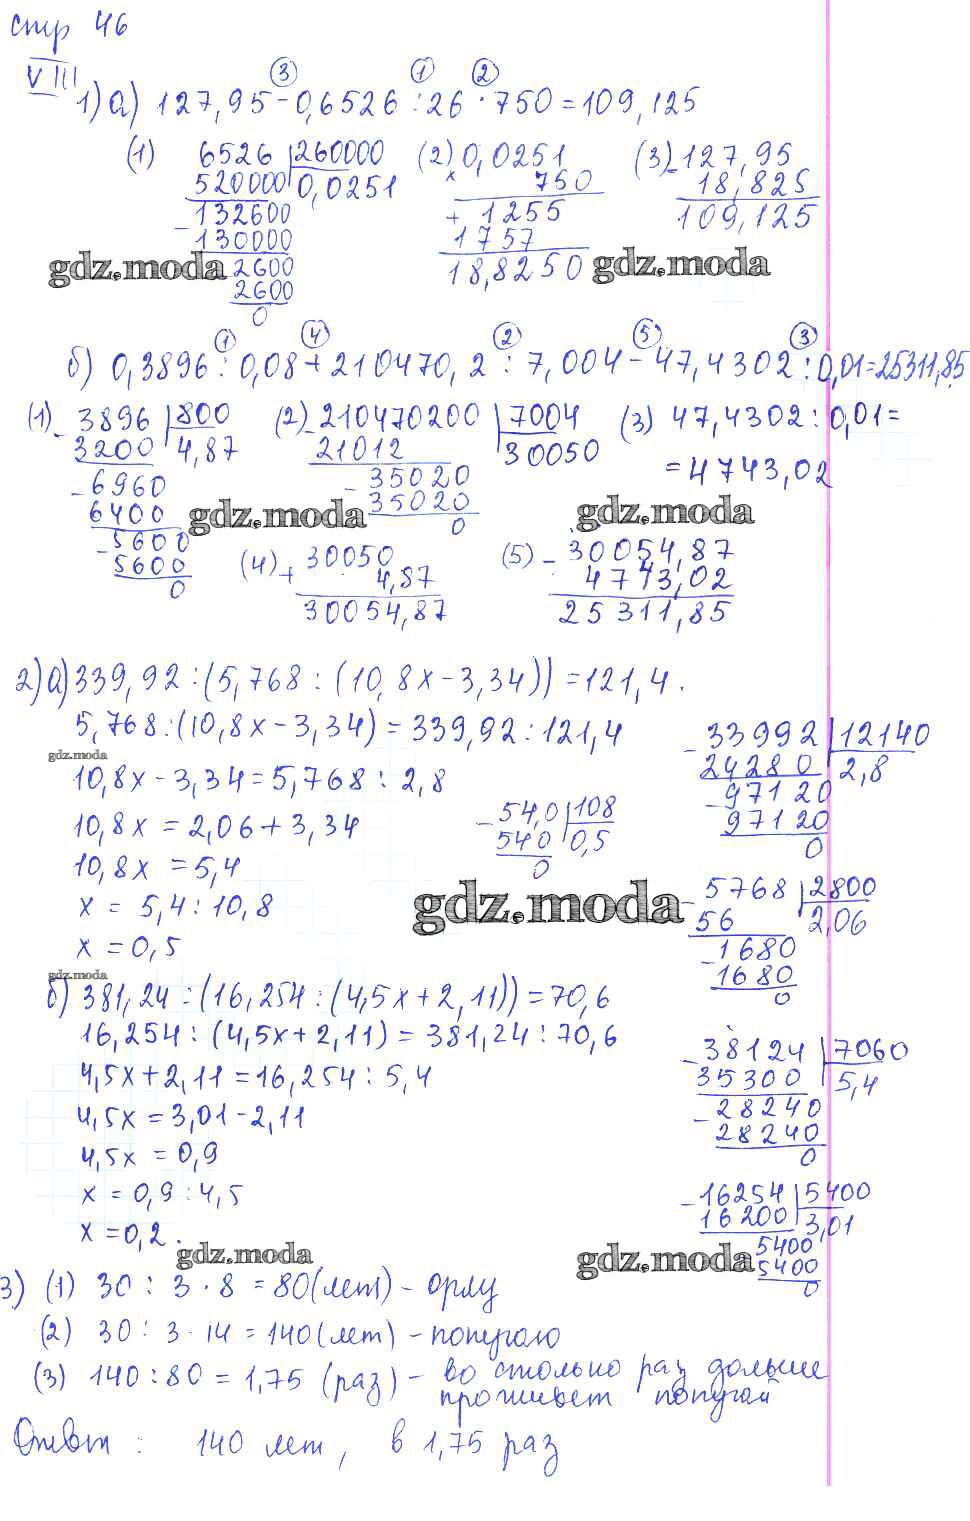 стр 46
VIII
1) а) 127,95 - 0,6526 : 26 · 750 = 109,125
③ ① ②
(1) 6526 | 260000 (2) 0,0251 (3) - 127,95
520000 | 0,0251 × 750 18,825
- 132600 + 1255 109,125
130000 1757
gdz.moda 2600 18,8250 gdz.moda
2600
0
① ④ ② ⑤ ③
б) 0,3896 : 0,08 + 210470,2 : 7,004 - 47,4302 : 0,01 = 25311,85
(1) - 3896 | 800 (2) - 210470200 | 7004 (3) 47,4302 : 0,01 =
3200 | 4,87 21012 | 30050 = 4743,02
- 6960 - 35020
6400 gdz.moda 35020 gdz.moda
- 5600 0
5600 (4) + 30050 (5) - 30054,87
0 4,87 4743,02
30054,87 25311,85
2) а) 339,92 : (5,768 : (10,8x - 3,34)) = 121,4.
5,768 : (10,8x - 3,34) = 339,92 : 121,4 - 33992 | 12140
gdz.moda 24280 | 2,8
10,8x - 3,34 = 5,768 : 2,8 - 97120
10,8x = 2,06 + 3,34 - 54,0 | 108 97120
540 | 0,5 0
10,8x = 5,4 0
x = 5,4 : 10,8 gdz.moda - 5768 | 2800
56 | 2,06
x = 0,5 - 1680
gdz.moda 1680
0
б) 381,24 : (16,254 : (4,5x + 2,11)) = 70,6
16,254 : (4,5x + 2,11) = 381,24 : 70,6 - 38124 | 7060
4,5x + 2,11 = 16,254 : 5,4 35300 | 5,4
4,5x = 3,01 - 2,11 - 28240
28240
4,5x = 0,9 0
x = 0,9 : 4,5 - 16254 | 5400
16200 | 3,01
x = 0,2. 5400
gdz.moda gdz.moda 5400
0
3) (1) 30 : 3 · 8 = 80 (лет) - орлу
(2) 30 : 3 · 14 = 140 (лет) - попугаю
(3) 140 : 80 = 1,75 (раз) - во столько раз дольше
проживет попугай
Ответ : 140 лет, в 1,75 раз